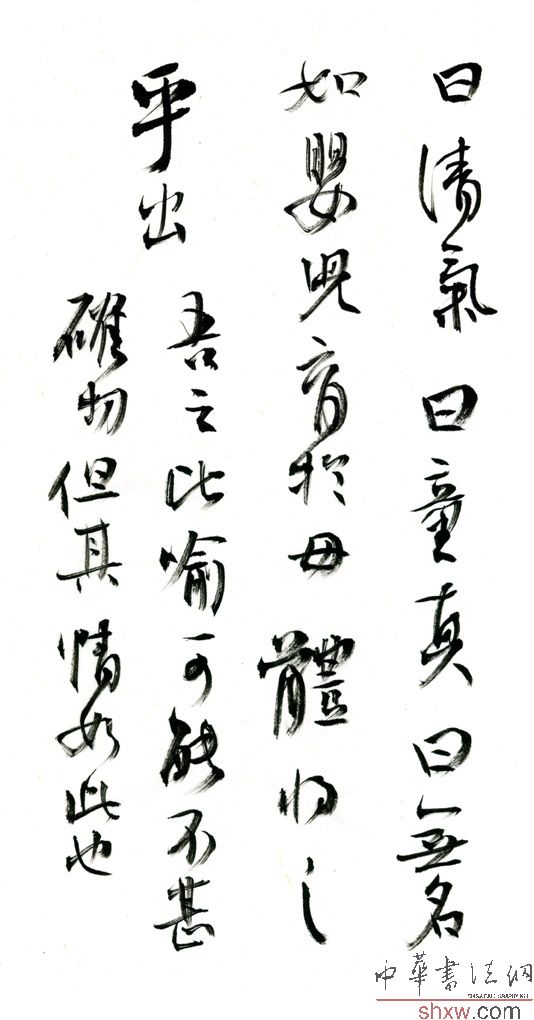 曰清氣曰童真曰無名
如嬰兒育於母體之
平出
吾之此喻可能不甚
確切但其情如此也
中華書法網
shxw.com